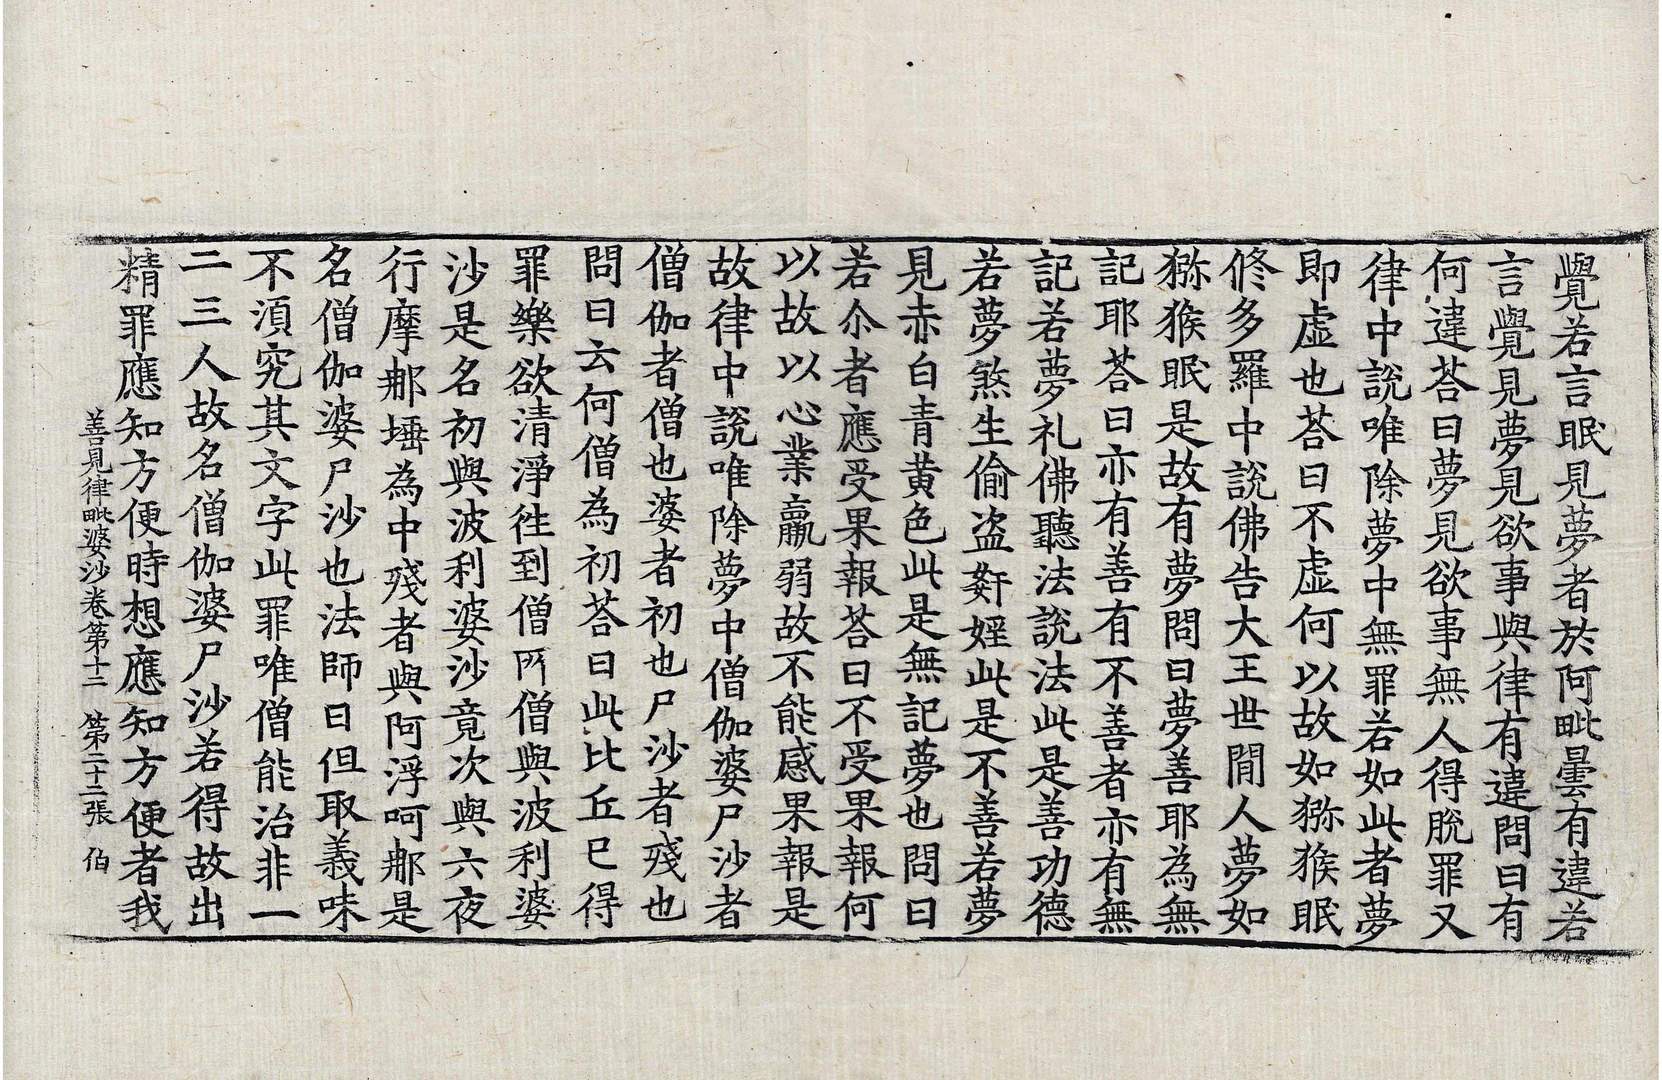 覺若言眠見夢者於阿毗曇有違若
言覺見夢見欲事與律有違問曰有
何違荅曰夢見欲事無人得脫罪又
律中說唯除夢中無罪若如此者夢
即虛也荅曰不虛何以故如猕猴眠
修多羅中說佛告大王世間人夢如
猕猴眠是故有夢問曰夢善耶為無
記耶荅曰亦有善有不善者亦有無
記若夢礼佛聽法說法此是善功德
若夢煞生偷盗姧婬此是不善若夢
見赤白青黄色此是無記夢也問曰
若尒者應受果報荅曰不受果報何
以故以心業羸弱故不能感果報是
故律中說唯除夢中僧伽婆尸沙者
僧伽者僧也婆者初也尸沙者殘也
問曰云何僧為初荅曰此比丘已得
罪樂欲清淨徃到僧所僧與波利婆
沙是名初與波利婆沙竟次與六夜
行摩郍埵為中殘者與阿浮呵郍是
名僧伽婆尸沙也法師曰但取義味
不湏究其文字此罪唯僧能治非一
二三人故名僧伽婆尸沙若得故出
精罪應知方便時想應知方便者我
善見律毗婆沙卷第十二 第二十二張 伯